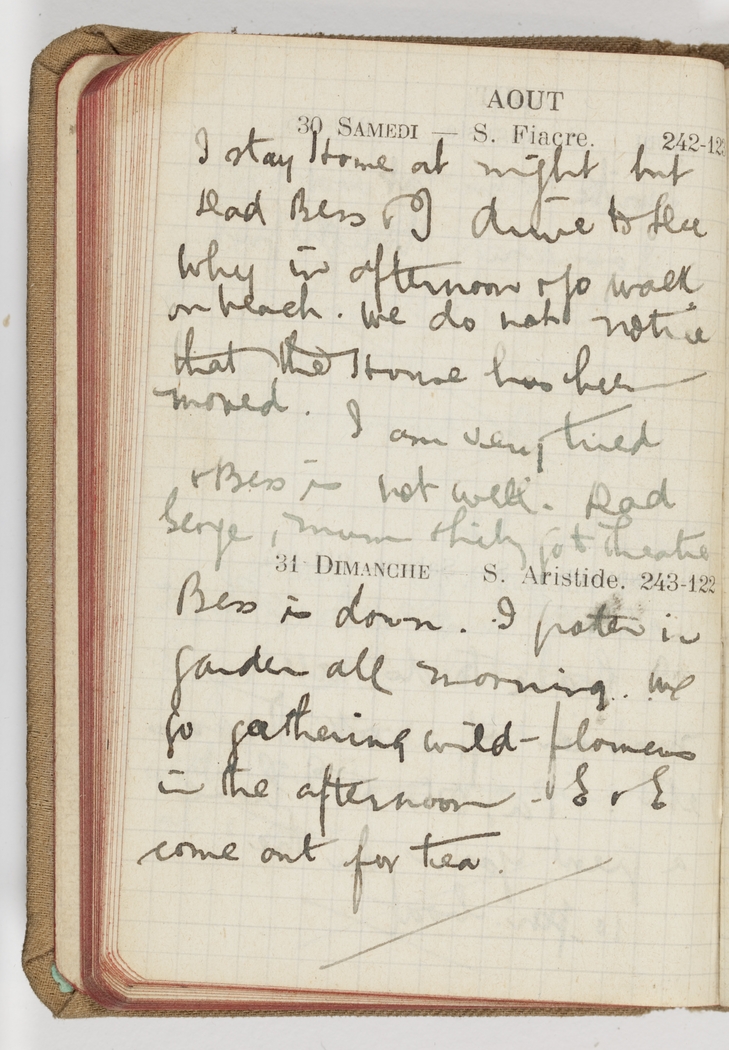 AOUT
30 SAMEDI — S. Fiacre. 242-12
I stay Home at night but
Dad Bess & I drive to see
Why in afternoon & go walk
on beach. We do not notice
that the House has been
moved. I am very tired
& Bess is not well. Dad
Serge, Mum & go to theatre
31 DIMANCHE S. Aristide. 243-122
Bess is down. I potter in
garden all morning. We
go gathering wild-flowers
in the afternoon - E & E
come out for tea.